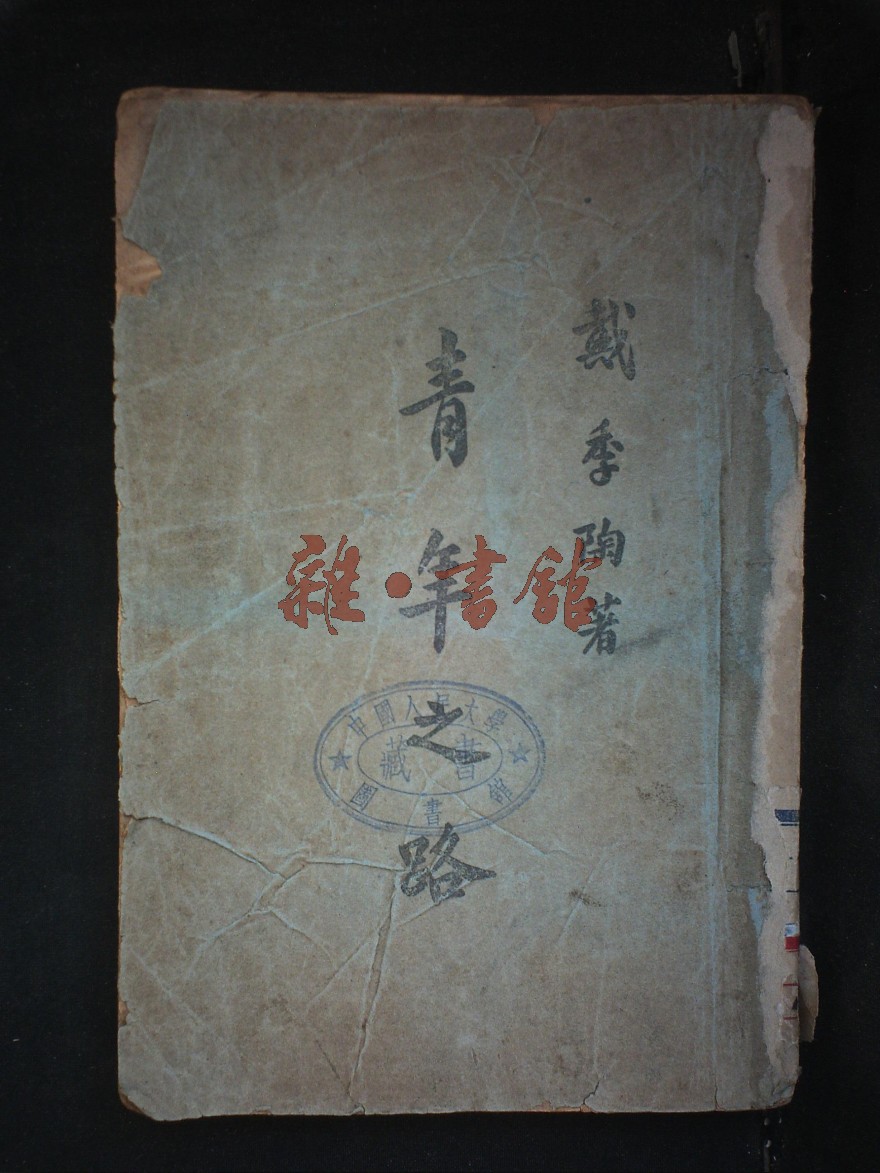 戴季陶著
青年之路
雜·書館
中國人民大學
藏書
圖書館